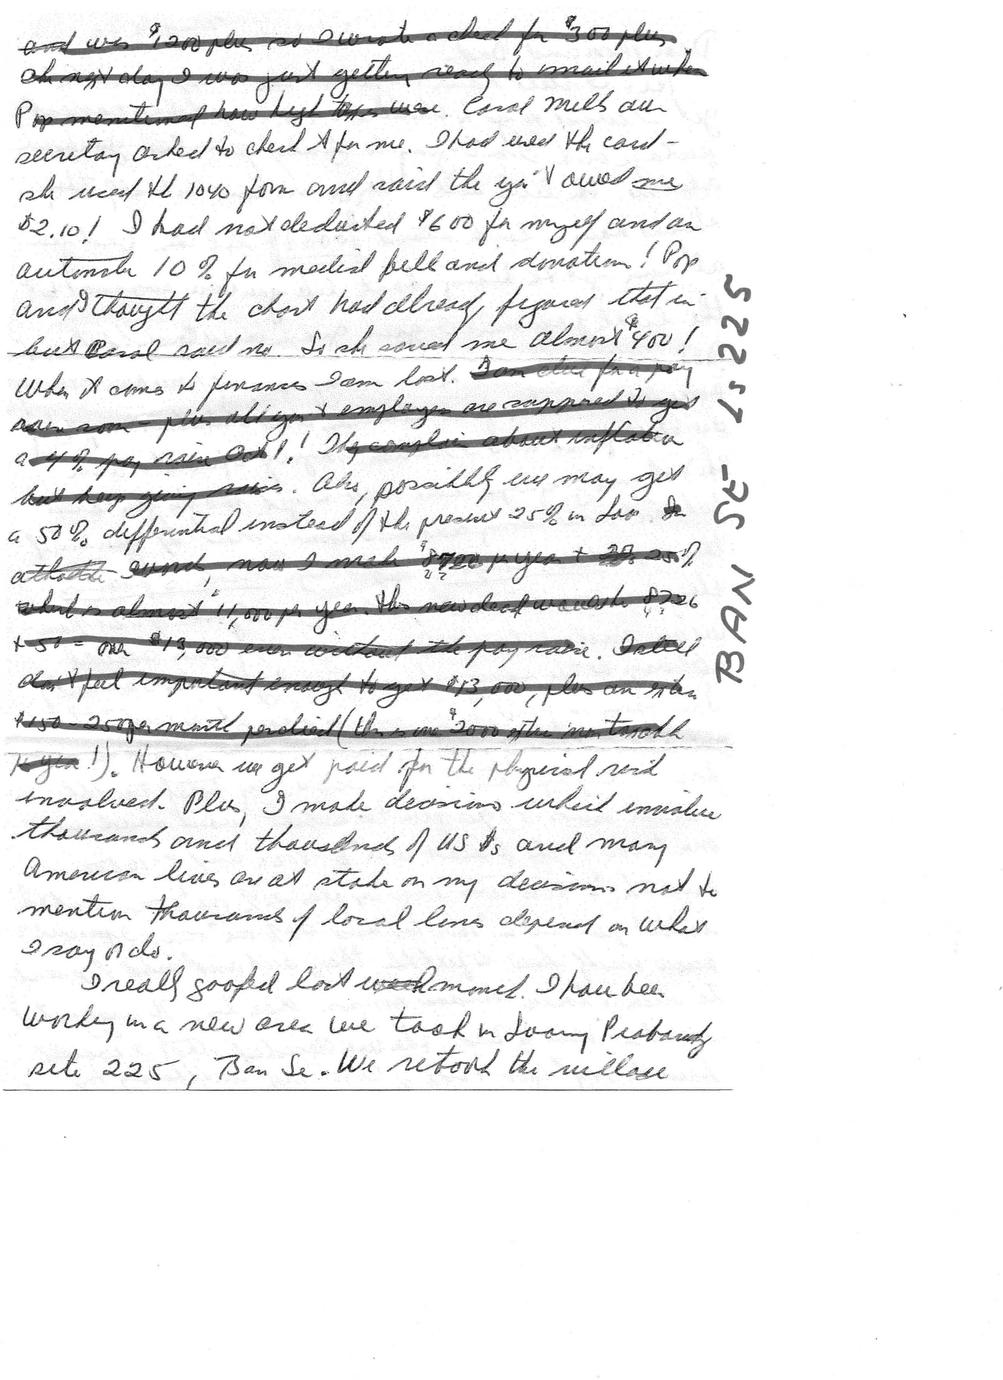 and was $1200 plus so I wrote a check for $300 plus
the next day I was just getting ready to mail it when
Pop mentioned how high taxes were. Carol Mills our
secretary asked to check it for me. I had used the card -
she used the 1040 form and said the gov't owed me
$2.10! I had not deducted $600 for myself and an
automatic 10% for medical bill and donation! Pop
and I thought the chart had already figured that in
but Carol said no. So she saved me almost $400!
When it comes to finances I am lost. I am due for a pay
raise soon - plus all gov't employees are supposed to get
a 4% pay raise Oct 1! They complain about inflation
but keep giving raises. Also, possibly we may get
a 50% differential instead of the present 25% in Laos. In
other words, now I make $8726 per year + 25%
which is almost $11,000 per year. This new deal would be 8726
+ 50 = over $13,000 even without the pay raise. I still
don't feel important enough to get $13,000, plus an extra
$150-250 per month per diem (this is over $2000 extra
per year!). However we get paid for the physical risk
involved. Plus, I make decisions which involve
thousands and thousands of US $s and many
American lives are at stake on my decisions not to
mention thousands of local lives depend on what
I say or do.
I really goofed last week March. I have been
working in a new area we took in Luang Prabang
site 225, Ban Se. We retook the village
BAN SE LS 225